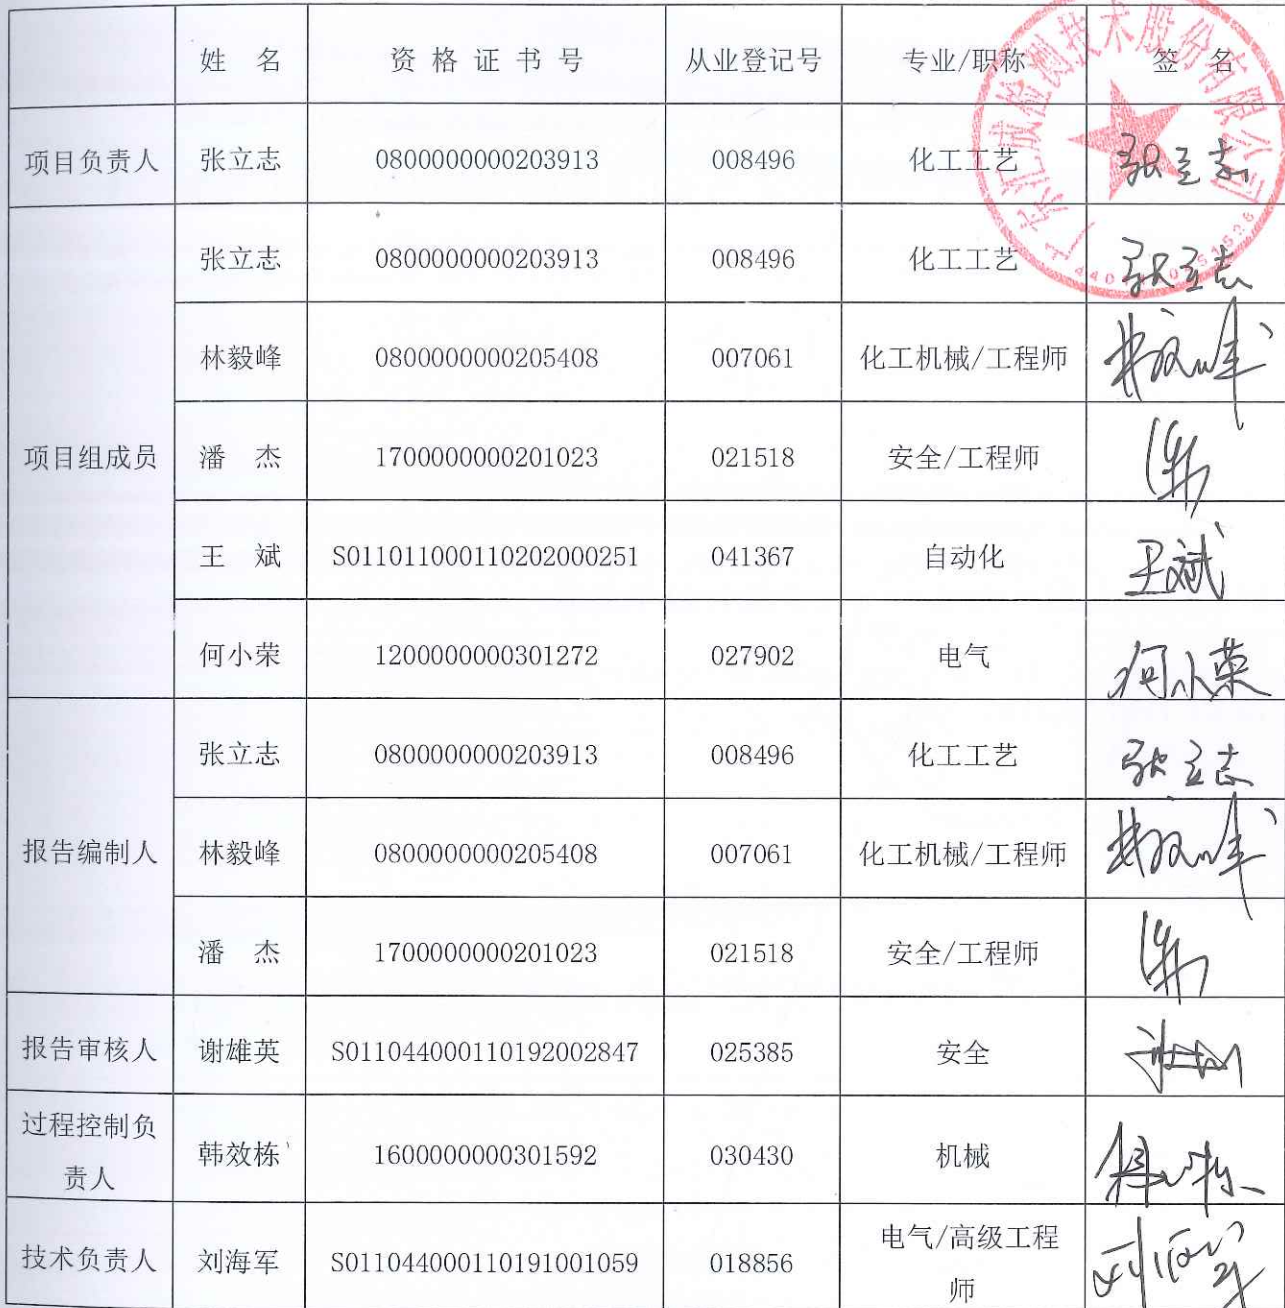 姓 名 资格证书号 从业登记号 专业/职称 签 名
项目负责人 张立志 0800000000203913 008496 化工工艺 张立志
项目组成员 张立志 0800000000203913 008496 化工工艺 张立志
林毅峰 0800000000205408 007061 化工机械/工程师 林毅峰
潘 杰 1700000000201023 021518 安全/工程师
王 斌 S011011000110202000251 041367 自动化 王斌
何小荣 1200000000301272 027902 电气 何小荣
报告编制人 张立志 0800000000203913 008496 化工工艺 张立志
林毅峰 0800000000205408 007061 化工机械/工程师 林毅峰
潘 杰 1700000000201023 021518 安全/工程师
报告审核人 谢雄英 S011044000110192002847 025385 安全
过程控制负
责人 韩效栋 1600000000301592 030430 机械
技术负责人 刘海军 S011044000110191001059 018856 电气/高级工程
师 刘海军
广东汇成检测技术股份有限公司